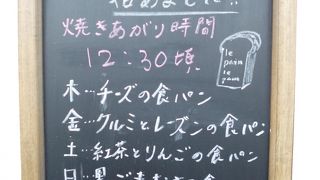 始めました!!
焼きあがり時間
12:30頃
le
pain
le
木…チーズの食パン
金…クルミとレーズンの食パン
土…紅茶とりんごの食パン
日…黒ごま